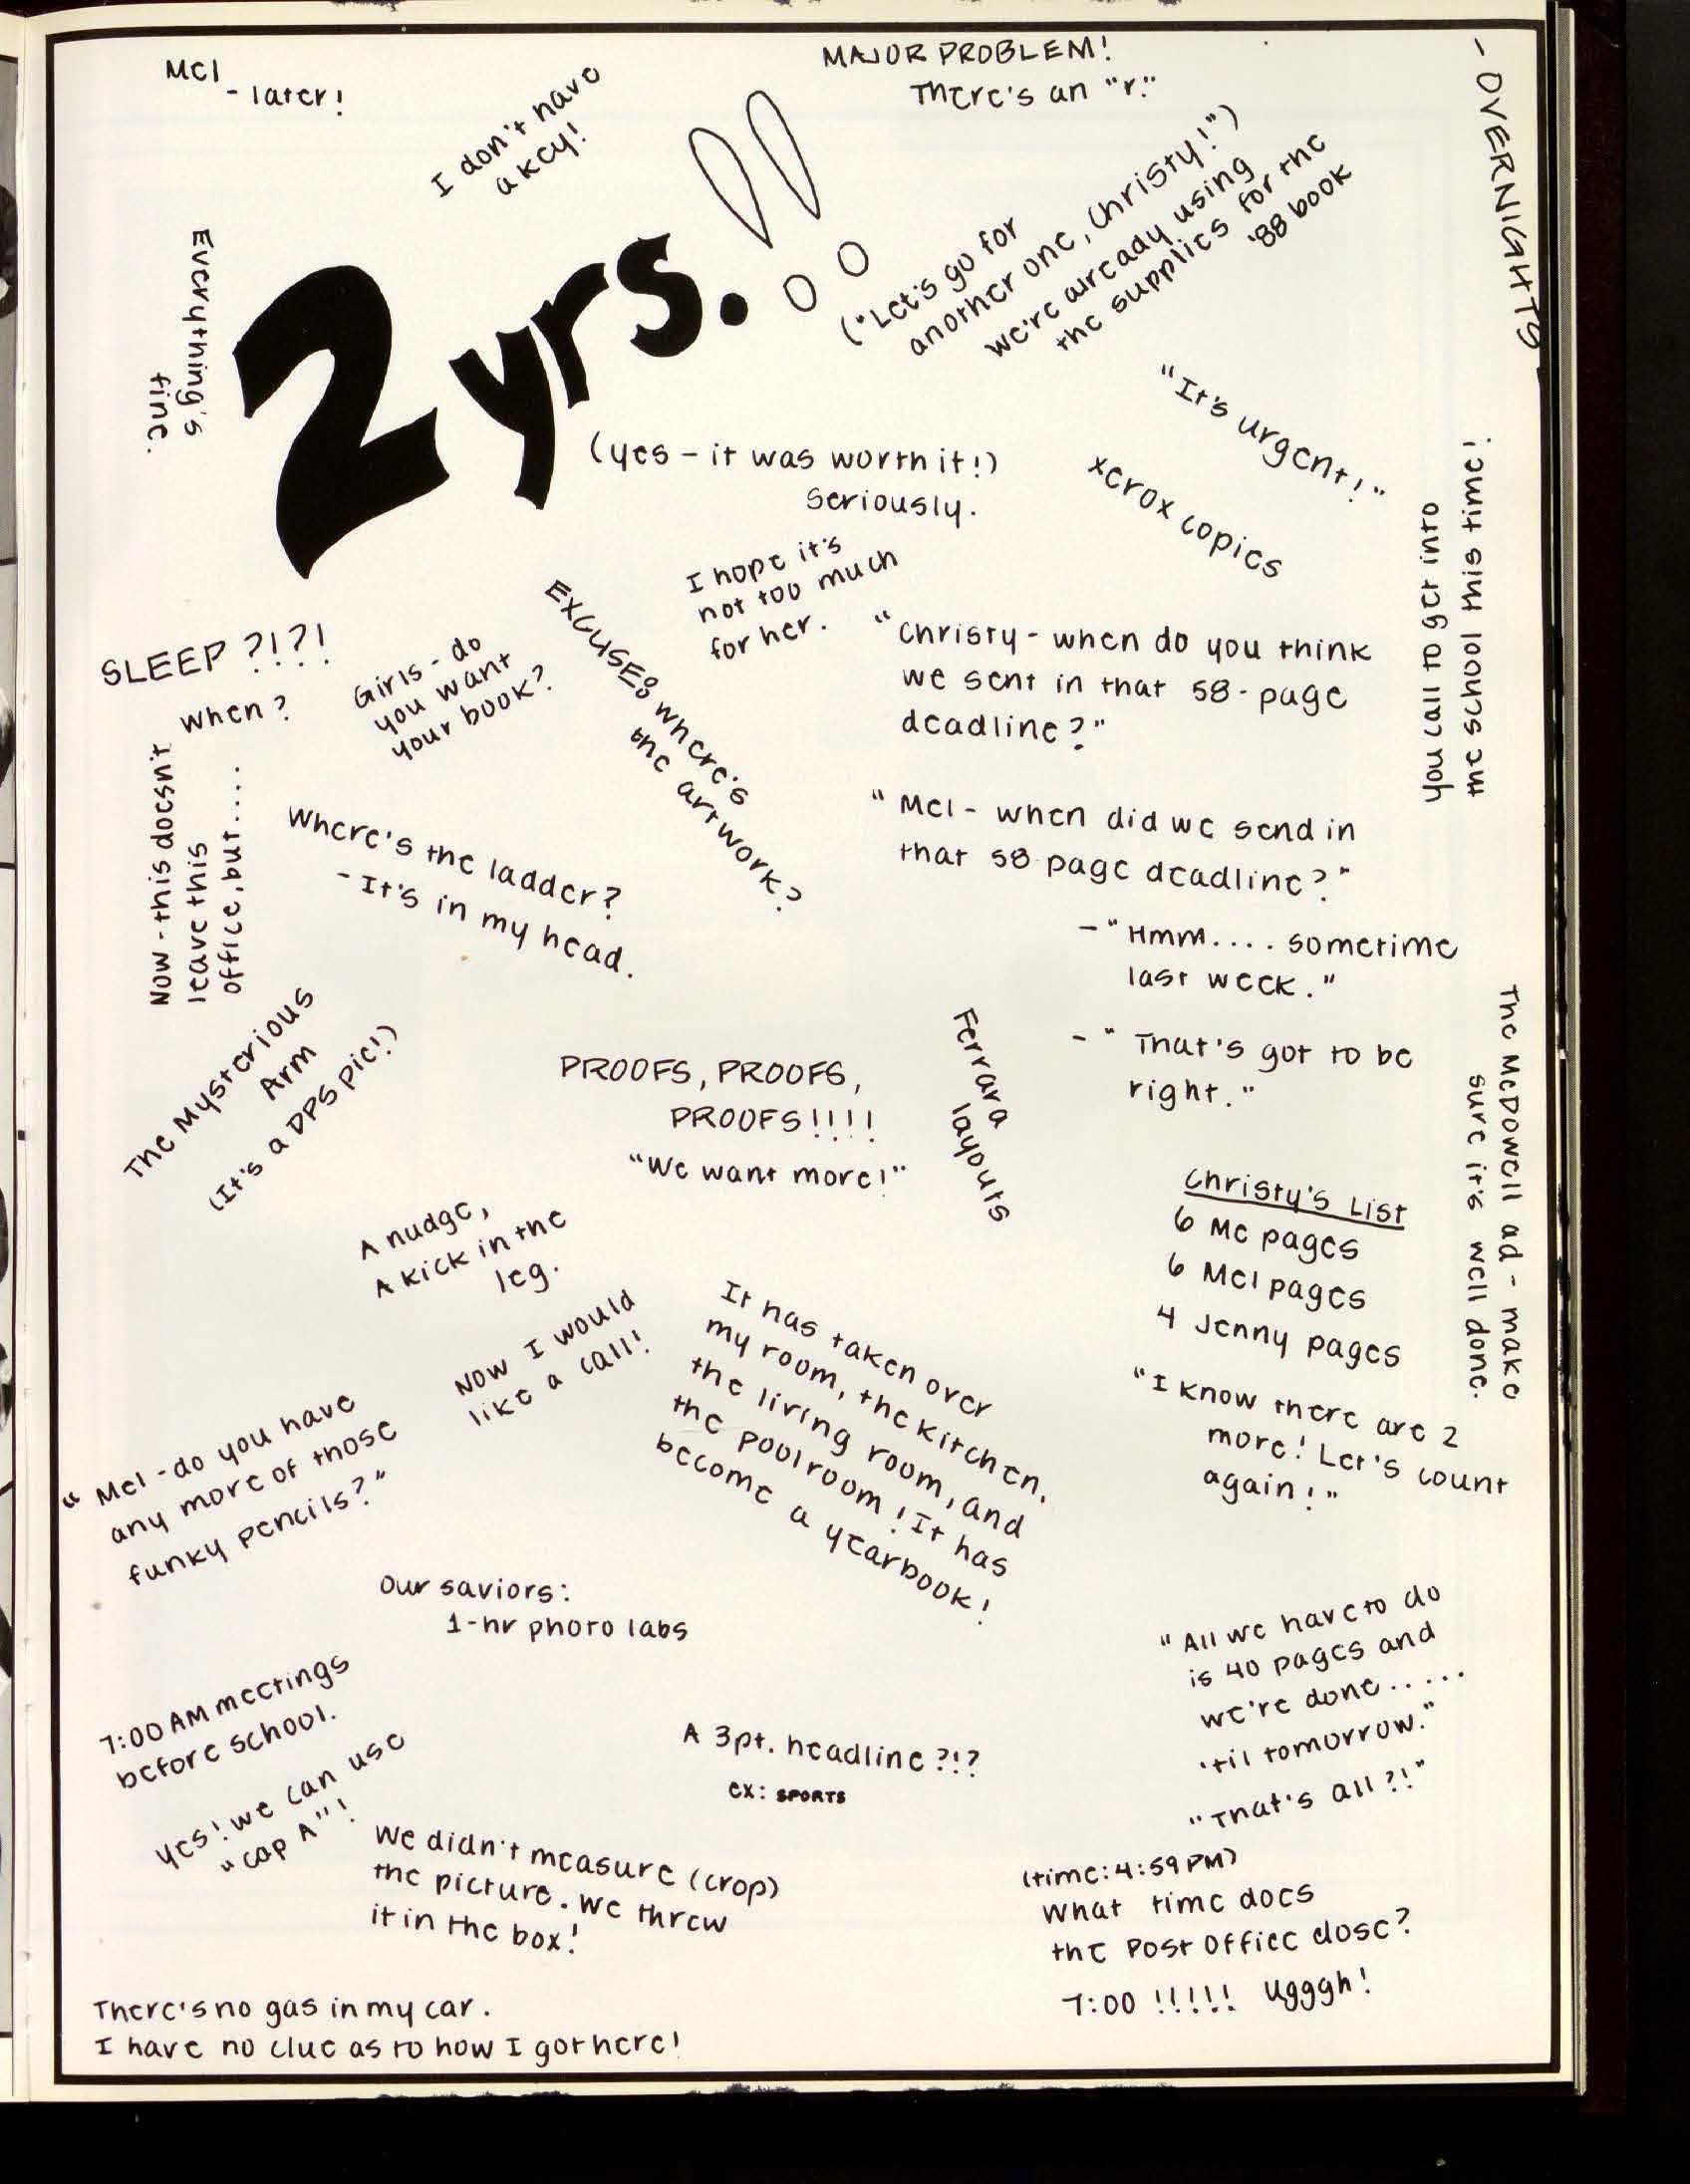 Mel
- later!
MAJOR PROBLEM!
There's an "r."
- OVERNIGHTS
I don't have
a key!
2 yrs.!!
("Let's go for
another one, Christy!")
we're already using
the supplies for the
'88 book
Everything's
fine.
"It's urgent!"
(yes - it was worth it!)
Seriously.
xerox copies
You call to get into
the school this time!
I hope it's
not too much
for her.
SLEEP ?!?!
when?
Girls - do
you want
your book?
EXCUSES
where's
the artwork?
"Christy - when do you think
we sent in that 58-page
deadline?"
Now - this doesn't
leave this
office, but....
Where's the ladder?
- It's in my head.
"Mel - when did we send in
that 58-page deadline?"
- "Hmm.... sometime
last week."
- "That's got to be
right."
The Mysterious
Arm
(It's a DPS pic!)
PROOFS, PROOFS,
PROOFS!!!!
"We want more!"
Ferrara
layouts
The McDowell ad - make
sure it's well done.
Christy's List
6 Me pages
6 Mel pages
4 Jenny pages
"I know there are 2
more! Let's count
again!"
A nudge,
A kick in the
leg.
Now I would
like a call!
It has taken over
my room, the kitchen,
the living room, and
the poolroom! It has
become a yearbook!
"Mel - do you have
any more of those
funky pencils?"
Our saviors:
1-hr photo labs
"All we have to do
is 40 pages and
we're done.....
'til tomorrow."
"That's all?!"
7:00 AM meetings
before school.
A 3pt. headline?!?
ex: SPORTS
yes! we can use
"cap A"!
We didn't measure (crop)
the picture. We threw
it in the box!
(time: 4:59 PM)
What time does
the Post Office close?
7:00 !!!!! Ugggh!
There's no gas in my car.
I have no clue as to how I got here!